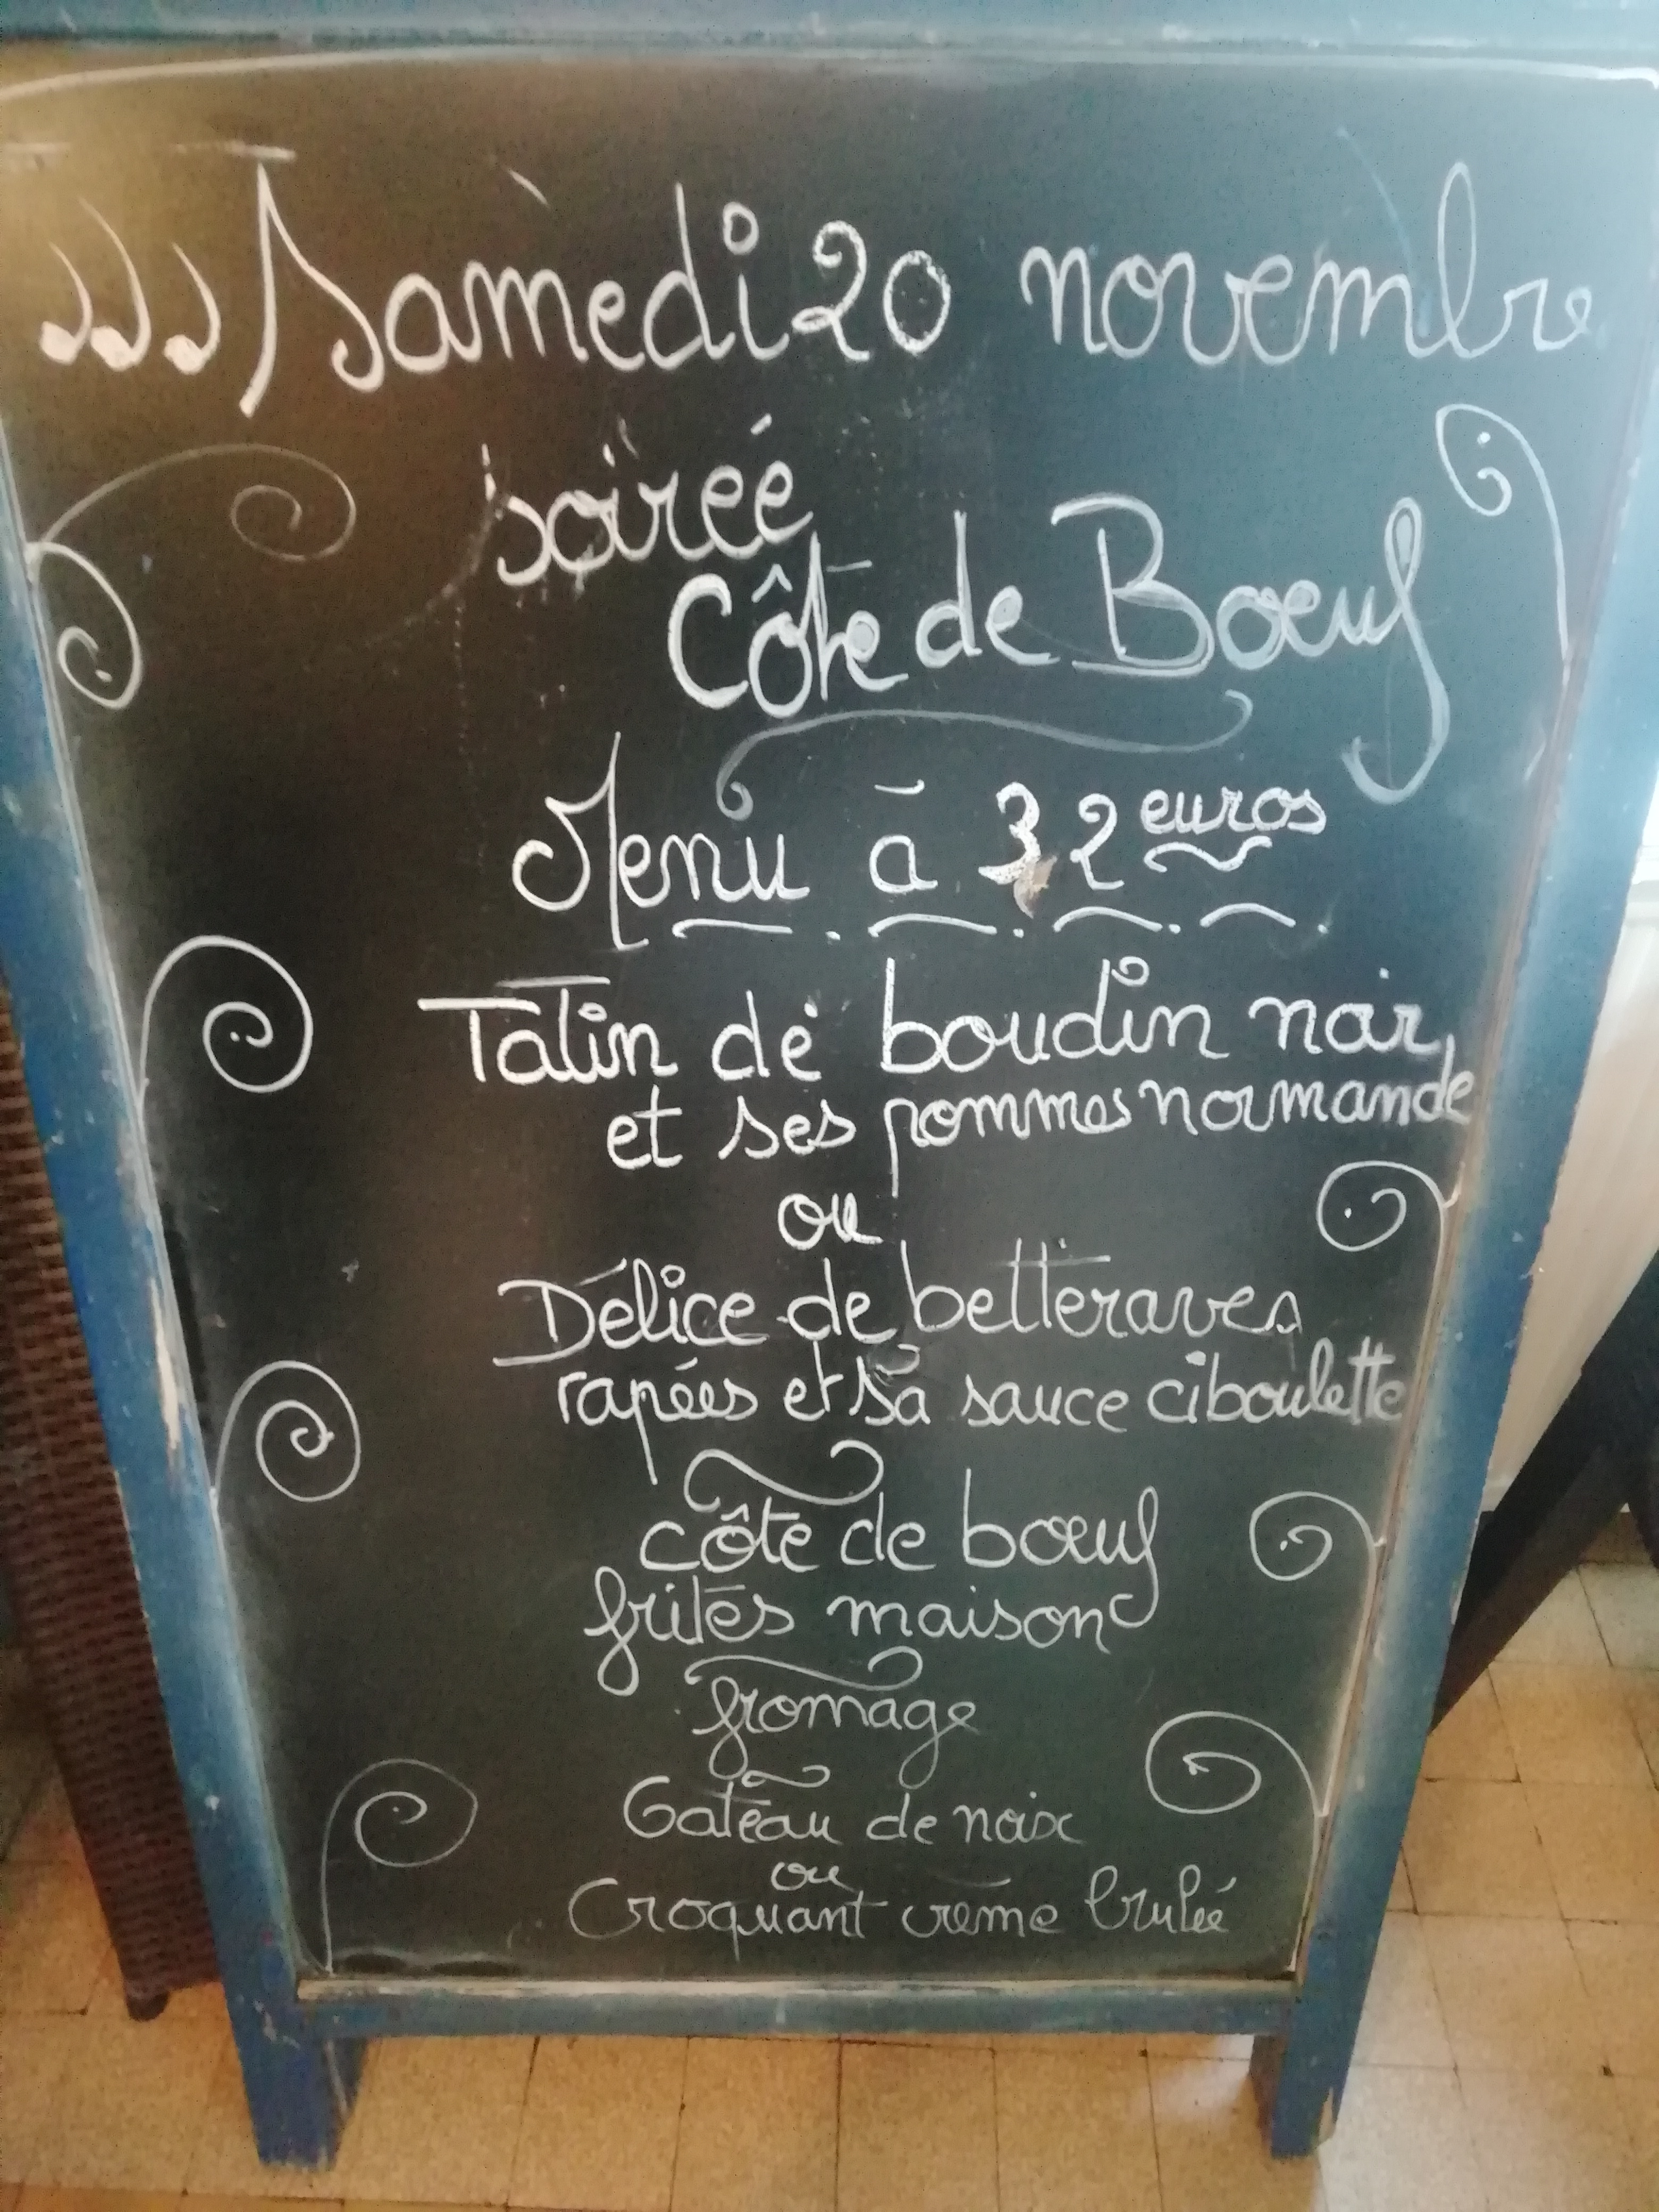 Samedi 20 novembre
soirée
Côte de Boeuf
Menu à 32 euros
Tatin de boudin noir,
et ses pommes normande
ou
Délice de betteraves
rapées et sa sauce ciboulette
côte de boeuf
frites maison
fromage
Gateau de noix
ou
Croquant crème brulée